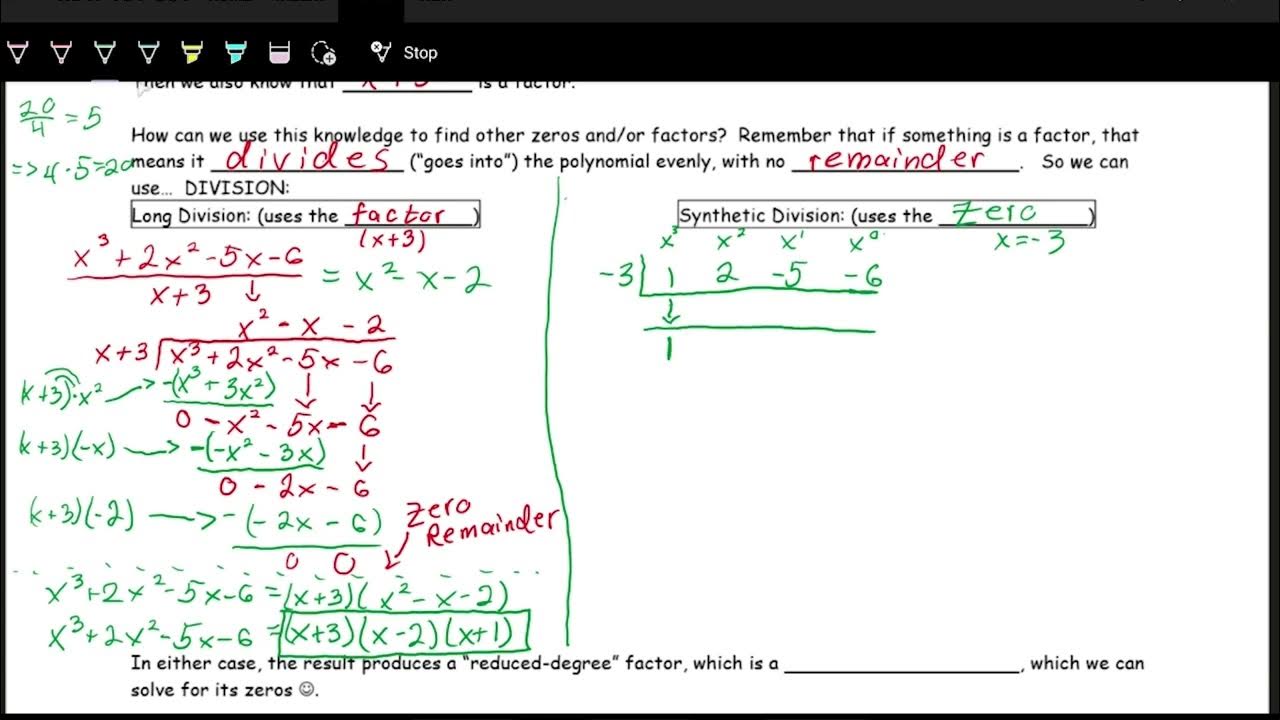 Stop
Then we also know that x + 3 is a factor.
20/4 = 5
=> 4 · 5 = 20
How can we use this knowledge to find other zeros and/or factors? Remember that if something is a factor, that
means it divides ("goes into") the polynomial evenly, with no remainder. So we can
use... DIVISION:
Long Division: (uses the factor)
(x+3)
x³ + 2x² - 5x - 6
x + 3
= x² - x - 2
x² - x - 2
x+3 x³ + 2x² - 5x - 6
(x+3)·x² -(x³ + 3x²)
0 - x² - 5x - 6
(x+3)(-x) -(-x² - 3x)
0 - 2x - 6
(x+3)(-2) -(-2x - 6)
0 0
Zero
Remainder
x³+2x²-5x-6 = (x+3)(x² - x - 2)
x³+2x²-5x-6 = (x+3)(x-2)(x+1)
Synthetic Division: (uses the Zero)
x = -3
x³ x² x¹ x⁰
-3 1 2 -5 -6
1
In either case, the result produces a "reduced-degree" factor, which is a ____________________, which we can
solve for its zeros ☺.